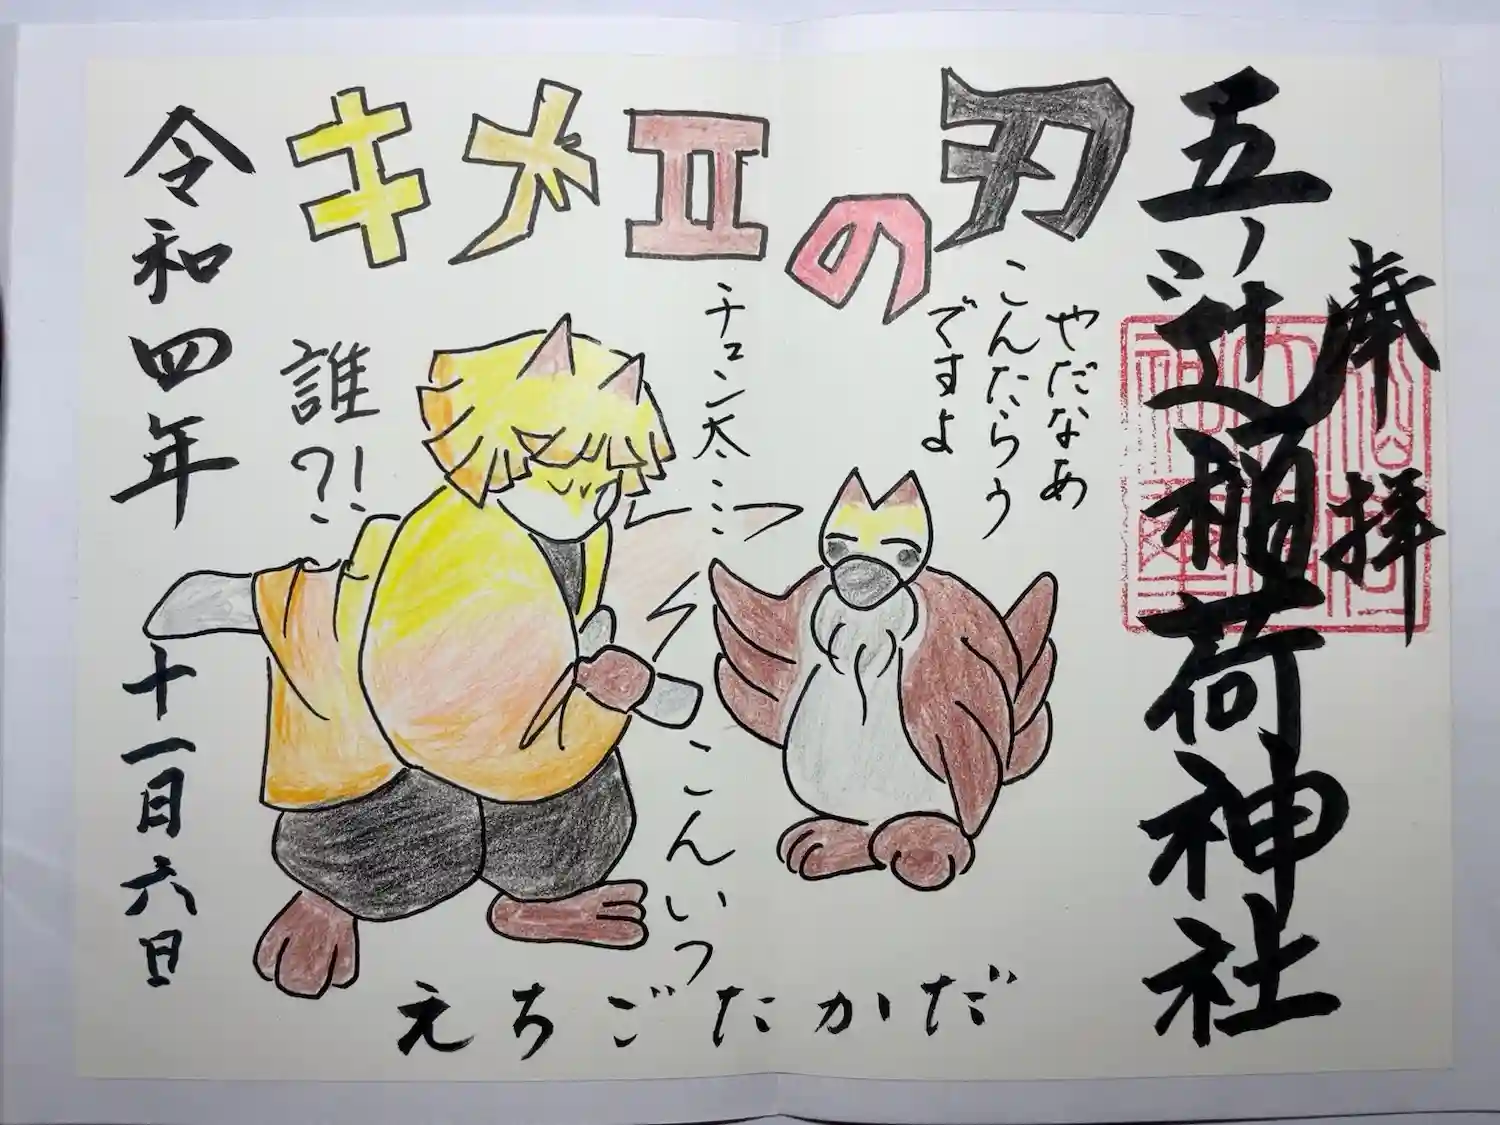 奉拝
五ノ辻稲荷神社
キメⅡの刃
やだなあ
こんたらう
ですよ
チュン太……
こんいつ
誰?!
えちごたかだ
令和四年
十一日六日